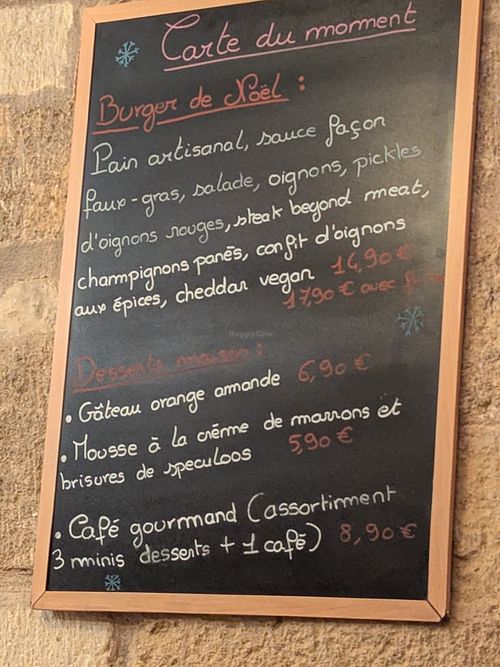 Carte du moment
Burger de Noël :
Pain artisanal, sauce façon
faux-gras, salade, oignons, pickles
d'oignons rouges, steak beyond meat,
champignons panés, confit d'oignons
aux épices, cheddar vegan 14,90 €
17,90 € avec
Desserts maison :
• Gâteau orange amande 6,90 €
• Mousse à la crème de marrons et
brisures de speculoos 5,90 €
• Café gourmand (assortiment
3 minis desserts + 1 café) 8,90 €
HappyCow